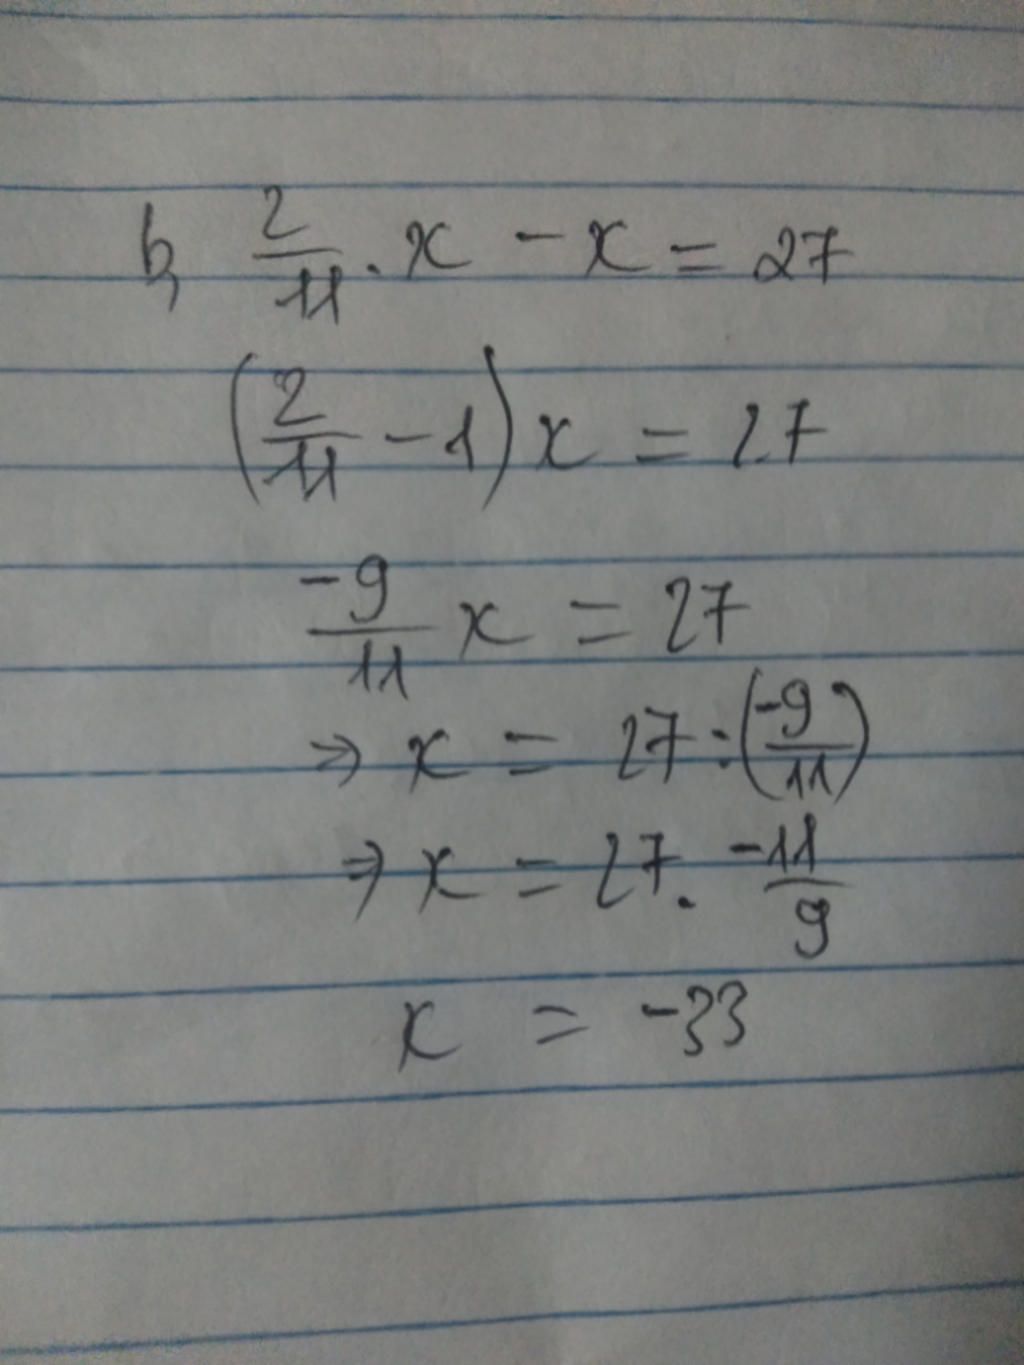 b, 2/11 . x - x = 27
(2/11 - 1) x = 27
-9/11 x = 27
⇒ x = 27 : (-9/11)
⇒ x = 27 . -11/9
x = -33